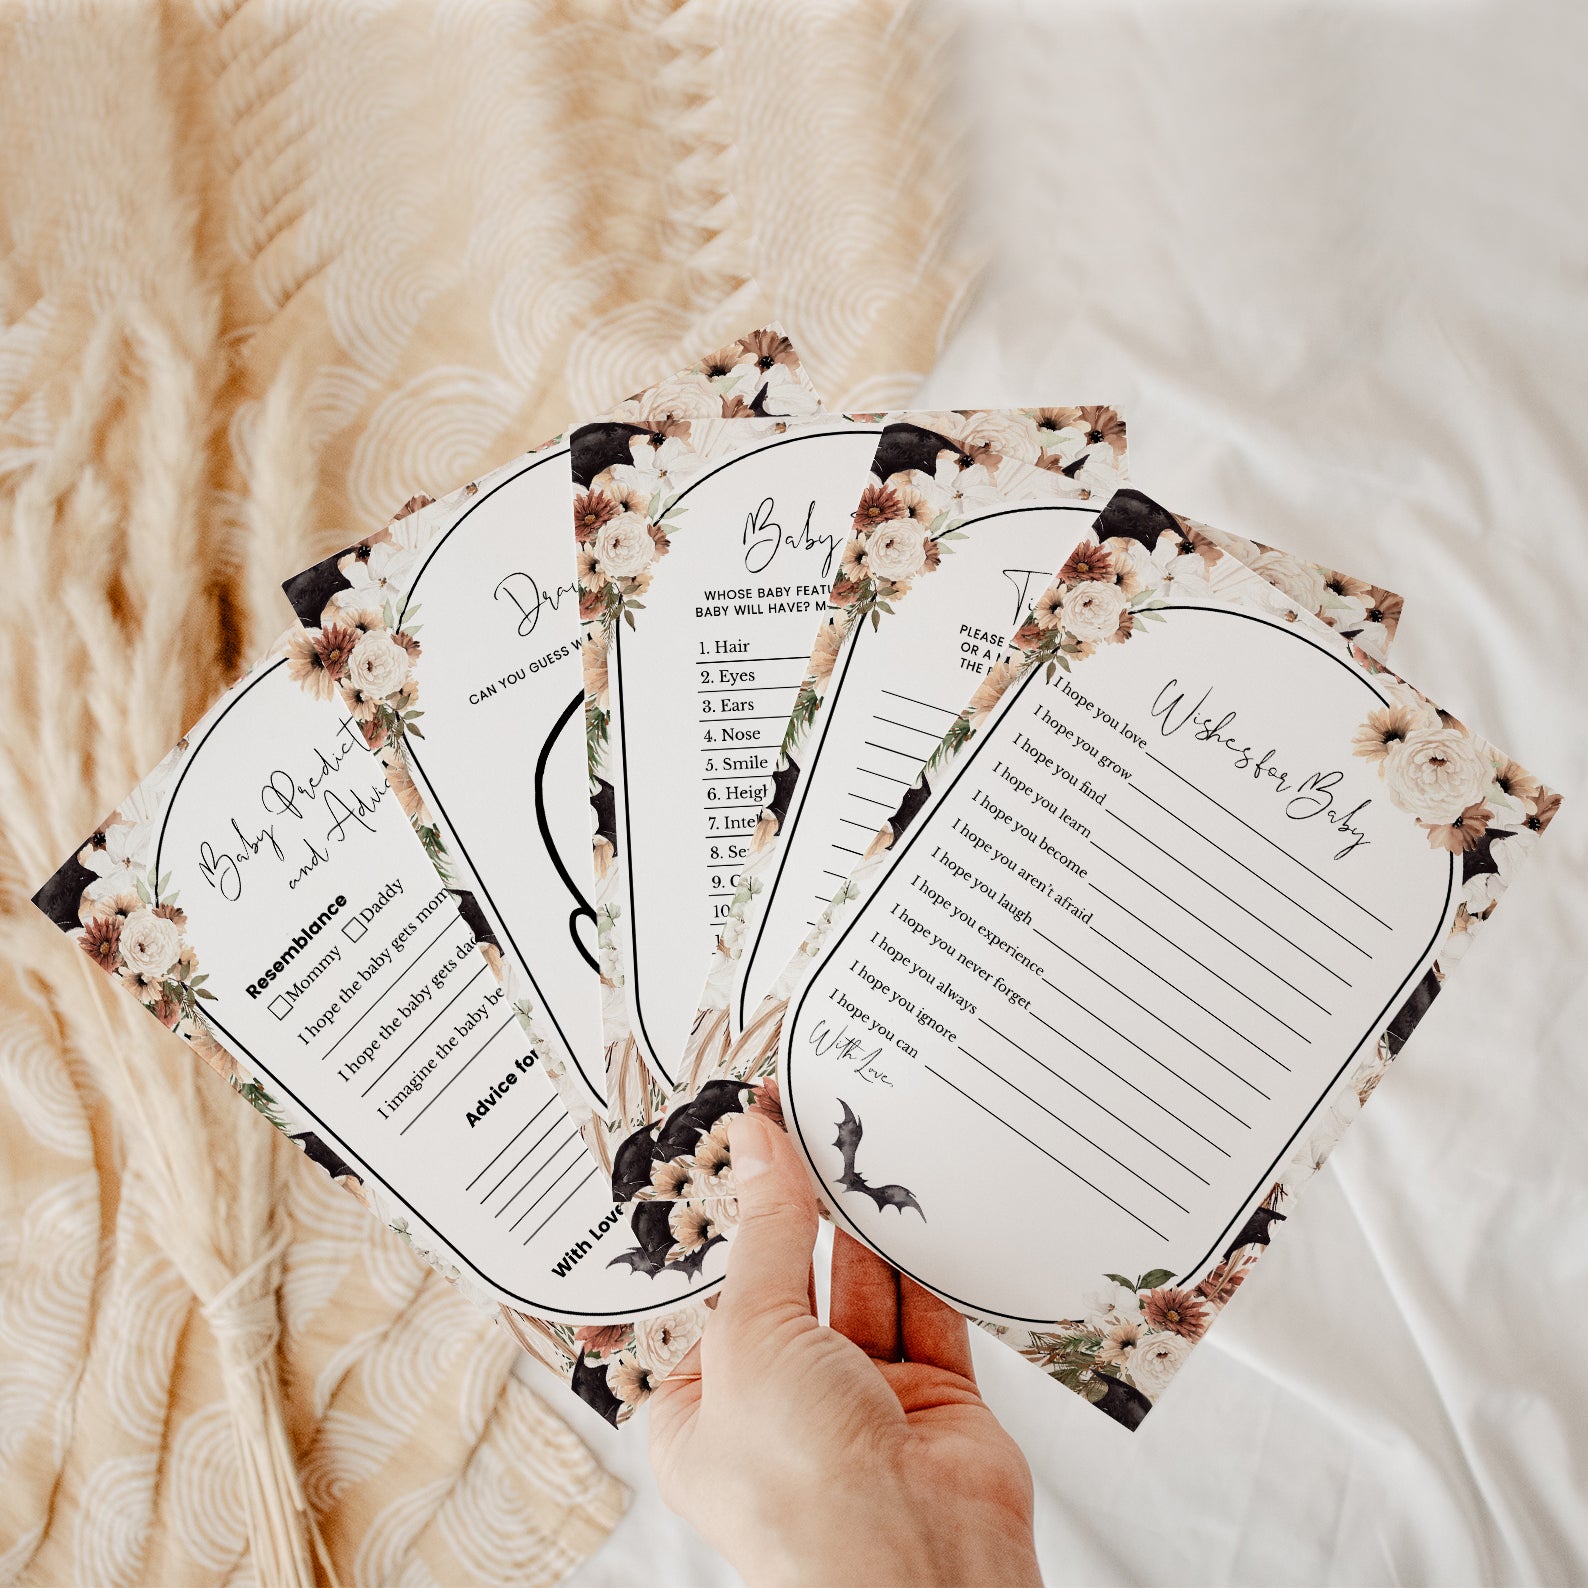 Baby Predict
and Advic
Resemblance
Mommy Daddy
I hope the baby gets mom
I hope the baby gets dad
I imagine the baby be
Advice for
With Love
Draw
CAN YOU GUESS W
Baby
WHOSE BABY FEATU
BABY WILL HAVE? M
1. Hair
2. Eyes
3. Ears
4. Nose
5. Smile
6. Heigh
7. Intel
8. Se
9. C
10
PLEASE
OR A M
THE
Wishes for Baby
I hope you love
I hope you grow
I hope you find
I hope you learn
I hope you become
I hope you aren't afraid
I hope you laugh
I hope you experience
I hope you never forget
I hope you always
I hope you ignore
I hope you can
With Love,